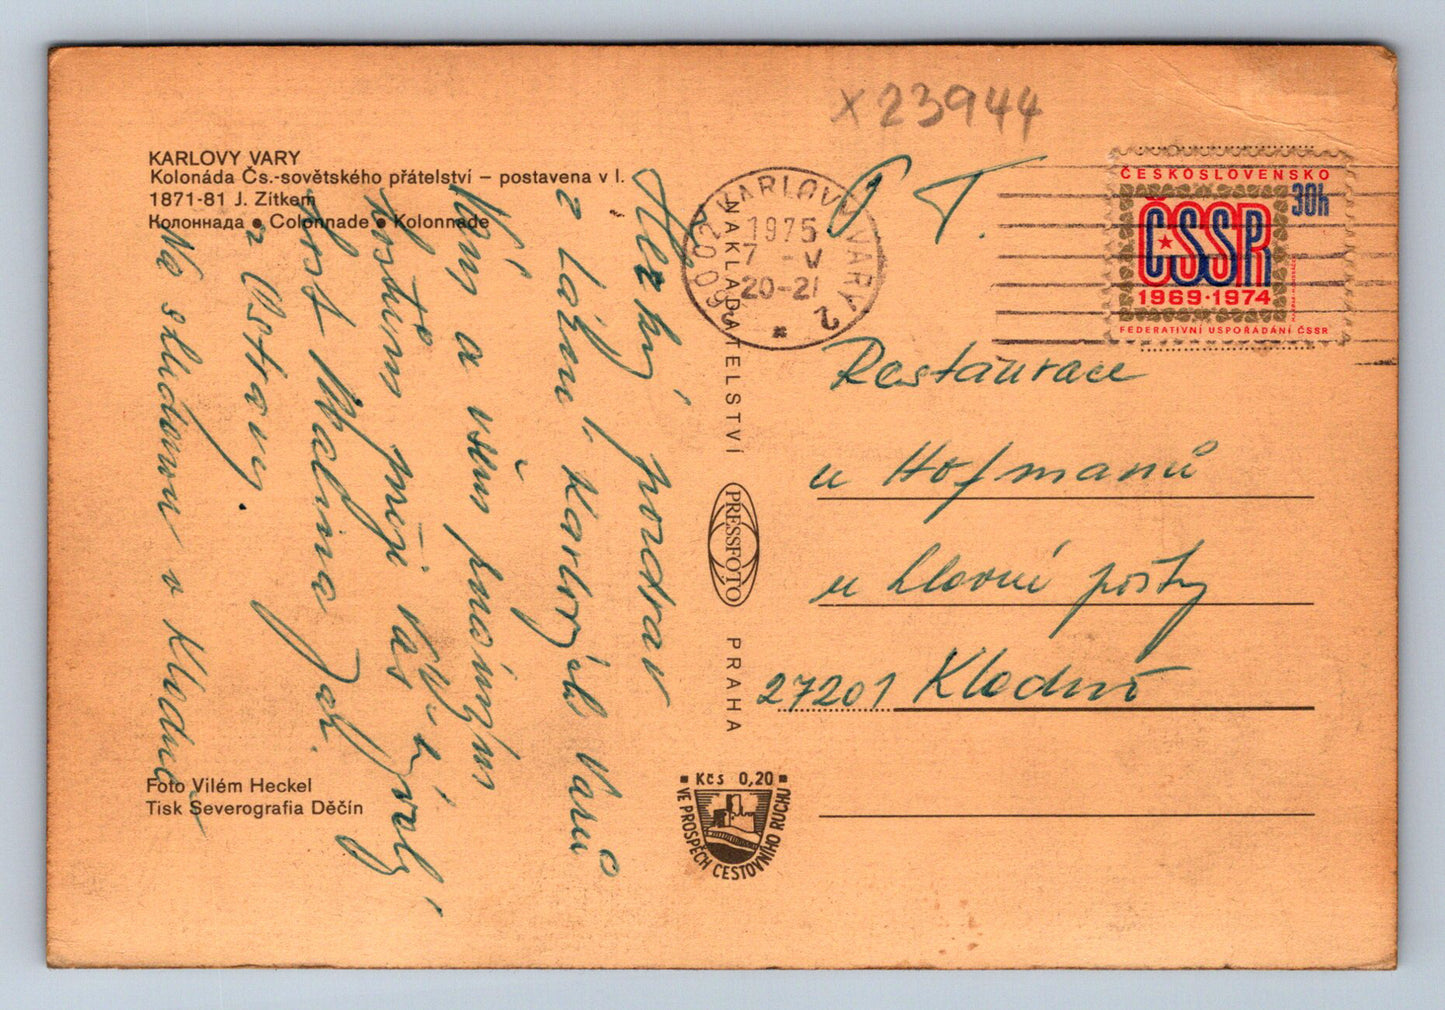 x 23944
KARLOVY VARY
Kolonáda Čs.-sovětského přátelství – postavena v l.
1871-81 J. Zítkem
Колоннада • Colonnade • Kolonnade
Hezký pozdrav
z Lázní Karlových Varů
Vám a všem
hostům přeji Váš
host Malina Jos.
z Ostravy.
Na shledanou v Kladně
Foto Vilém Heckel
Tisk Severografia Děčín
NAKLADATELSTVÍ
PRESSFOTO
PRAHA
Kčs 0,20
VE PROSPĚCH CESTOVNÍHO RUCHU
360 02 KARLOVY VARY 2
1975
7 -V
20-21
ČESKOSLOVENSKO
30h
ČSSR
1969·1974
FEDERATIVNÍ USPOŘÁDÁNÍ ČSSR
P. T.
Restaurace
u Hofmanů
u hlavní pošty
27201 Kladno